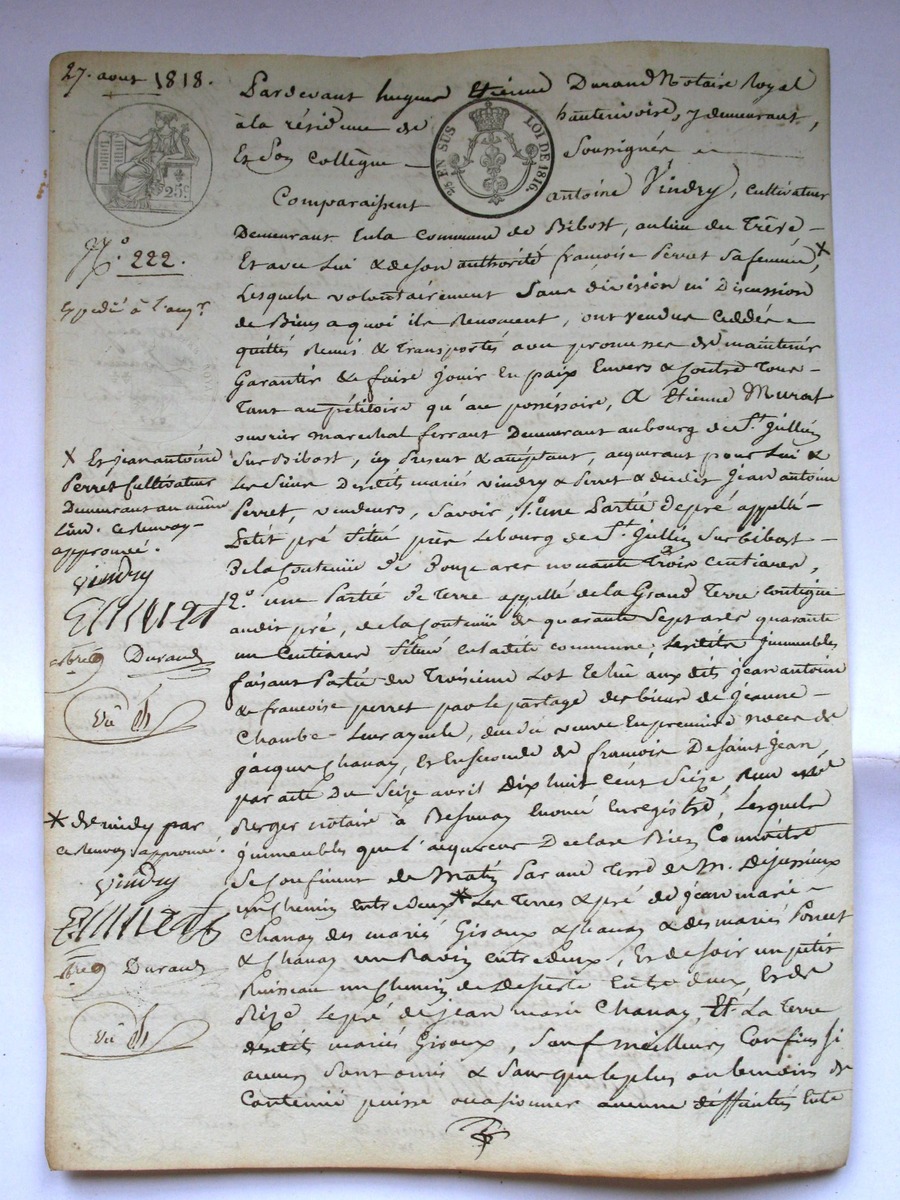 27. aout 1818.
Pardevant hugues Etienne Durand Notaire Royal
à la résidence de hauterivoire, y demeurant,
Et Son Collègue soussignés
25 EN SUS LOI DE 1816.
25c.
Comparaissent antoine Vindry, cultivateur
Demeurant En la commune de Bibost, au lieu du Tréve
Et avec Lui & de son authorité françoise Perret sa femme, X
Lesquels volontairement Sans division ni Discussion
de Biens a quoi ils Renoncent, ont vendus ceddés
quittés Remis & Transportés avec promesse de maintenir
Garantir & faire jouir En paix Envers & Contre Tous
Tant au pétitoire qu'au possessoire, A Etienne Murat
ouvrier marechal ferrant Demeurant au bourg de St. Jullien
Sur Bibost, icy Present & acceptant, acquerant pour Lui &
Les Siens Desdits mariés vindry & Perret & dudit Jean antoine
Perret, vendeurs, Savoir, 1o. une Partie de pré appellé
Petit pré Situé près Le bourg de St. Jullien Sur bibost
De la Contenue De Douze ares nonante Trois Centiares,
2o. une Partie De Terre appellé de la Grand Terre contigue
audit pré, de la Contenue de quarante Sept ares quarante
un Centiares Situé en ladite commune, Lesdits Jmmeubles
faisant Partie du Troisieme Lot Echu aux dits jean antoine
& francoise perret par le partage des biens de Jeanne
Chambe Leur ayeule, veuve En premiere noces de
jacques Chanay, Et En seconde de francois De Saint Jean
par acte Du Seize avril Dix huit Cent Seize Reçu
Berger notaire à Bessenay Enoncé Enregistré, Lesquels
jmmeubles que L'acquereur Declare Bien Connoitre
Se Confinent de Matin Par une Terre de M. Dejussieux
un chemin Entre deux * Les Terres & pré de jean marie
Chanay des mariés Giraux & Chanay & des mariés Poncet
& Chanay un Ravin entre deux, Et de Soir un petit
Ruisseau un Chemin de Desserte Entre deux, Et de
Bize Le pré de jean marie Chanay, Et La Terre
desdits mariés Giraux, Sauf meilleurs Confins Si
aucuns Sont omis & Sans que le plus ou le moins de
Contenue puisse occasionner aucune difficultés Entre
No. 222.
Expédié à l'acqr
X Et jean antoine
Perret Cultivateur
Demeurant au même
Lieu. ce renvoy
approuvé.
Vindry
E Murat
Durand
Vu
* de midy par
ce renvoy approuvé.
Vindry
E Murat
Durand
Vu